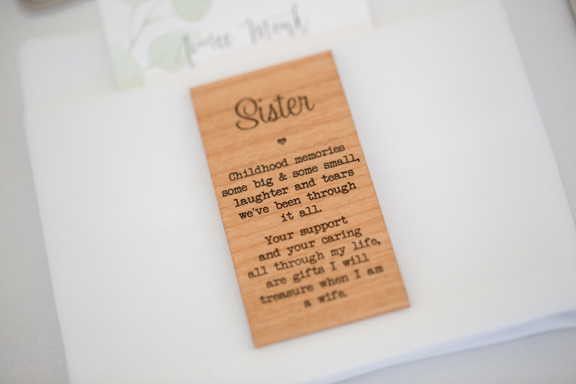 Monk
Sister
Childhood memories
some big & some small,
laughter and tears
we've been through
it all.
Your support
and your caring
all through my life,
are gifts I will
treasure when I am
a wife.